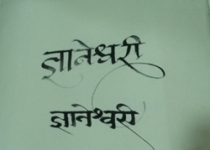 ज्ञानेश्वरी
ज्ञानेश्वरी